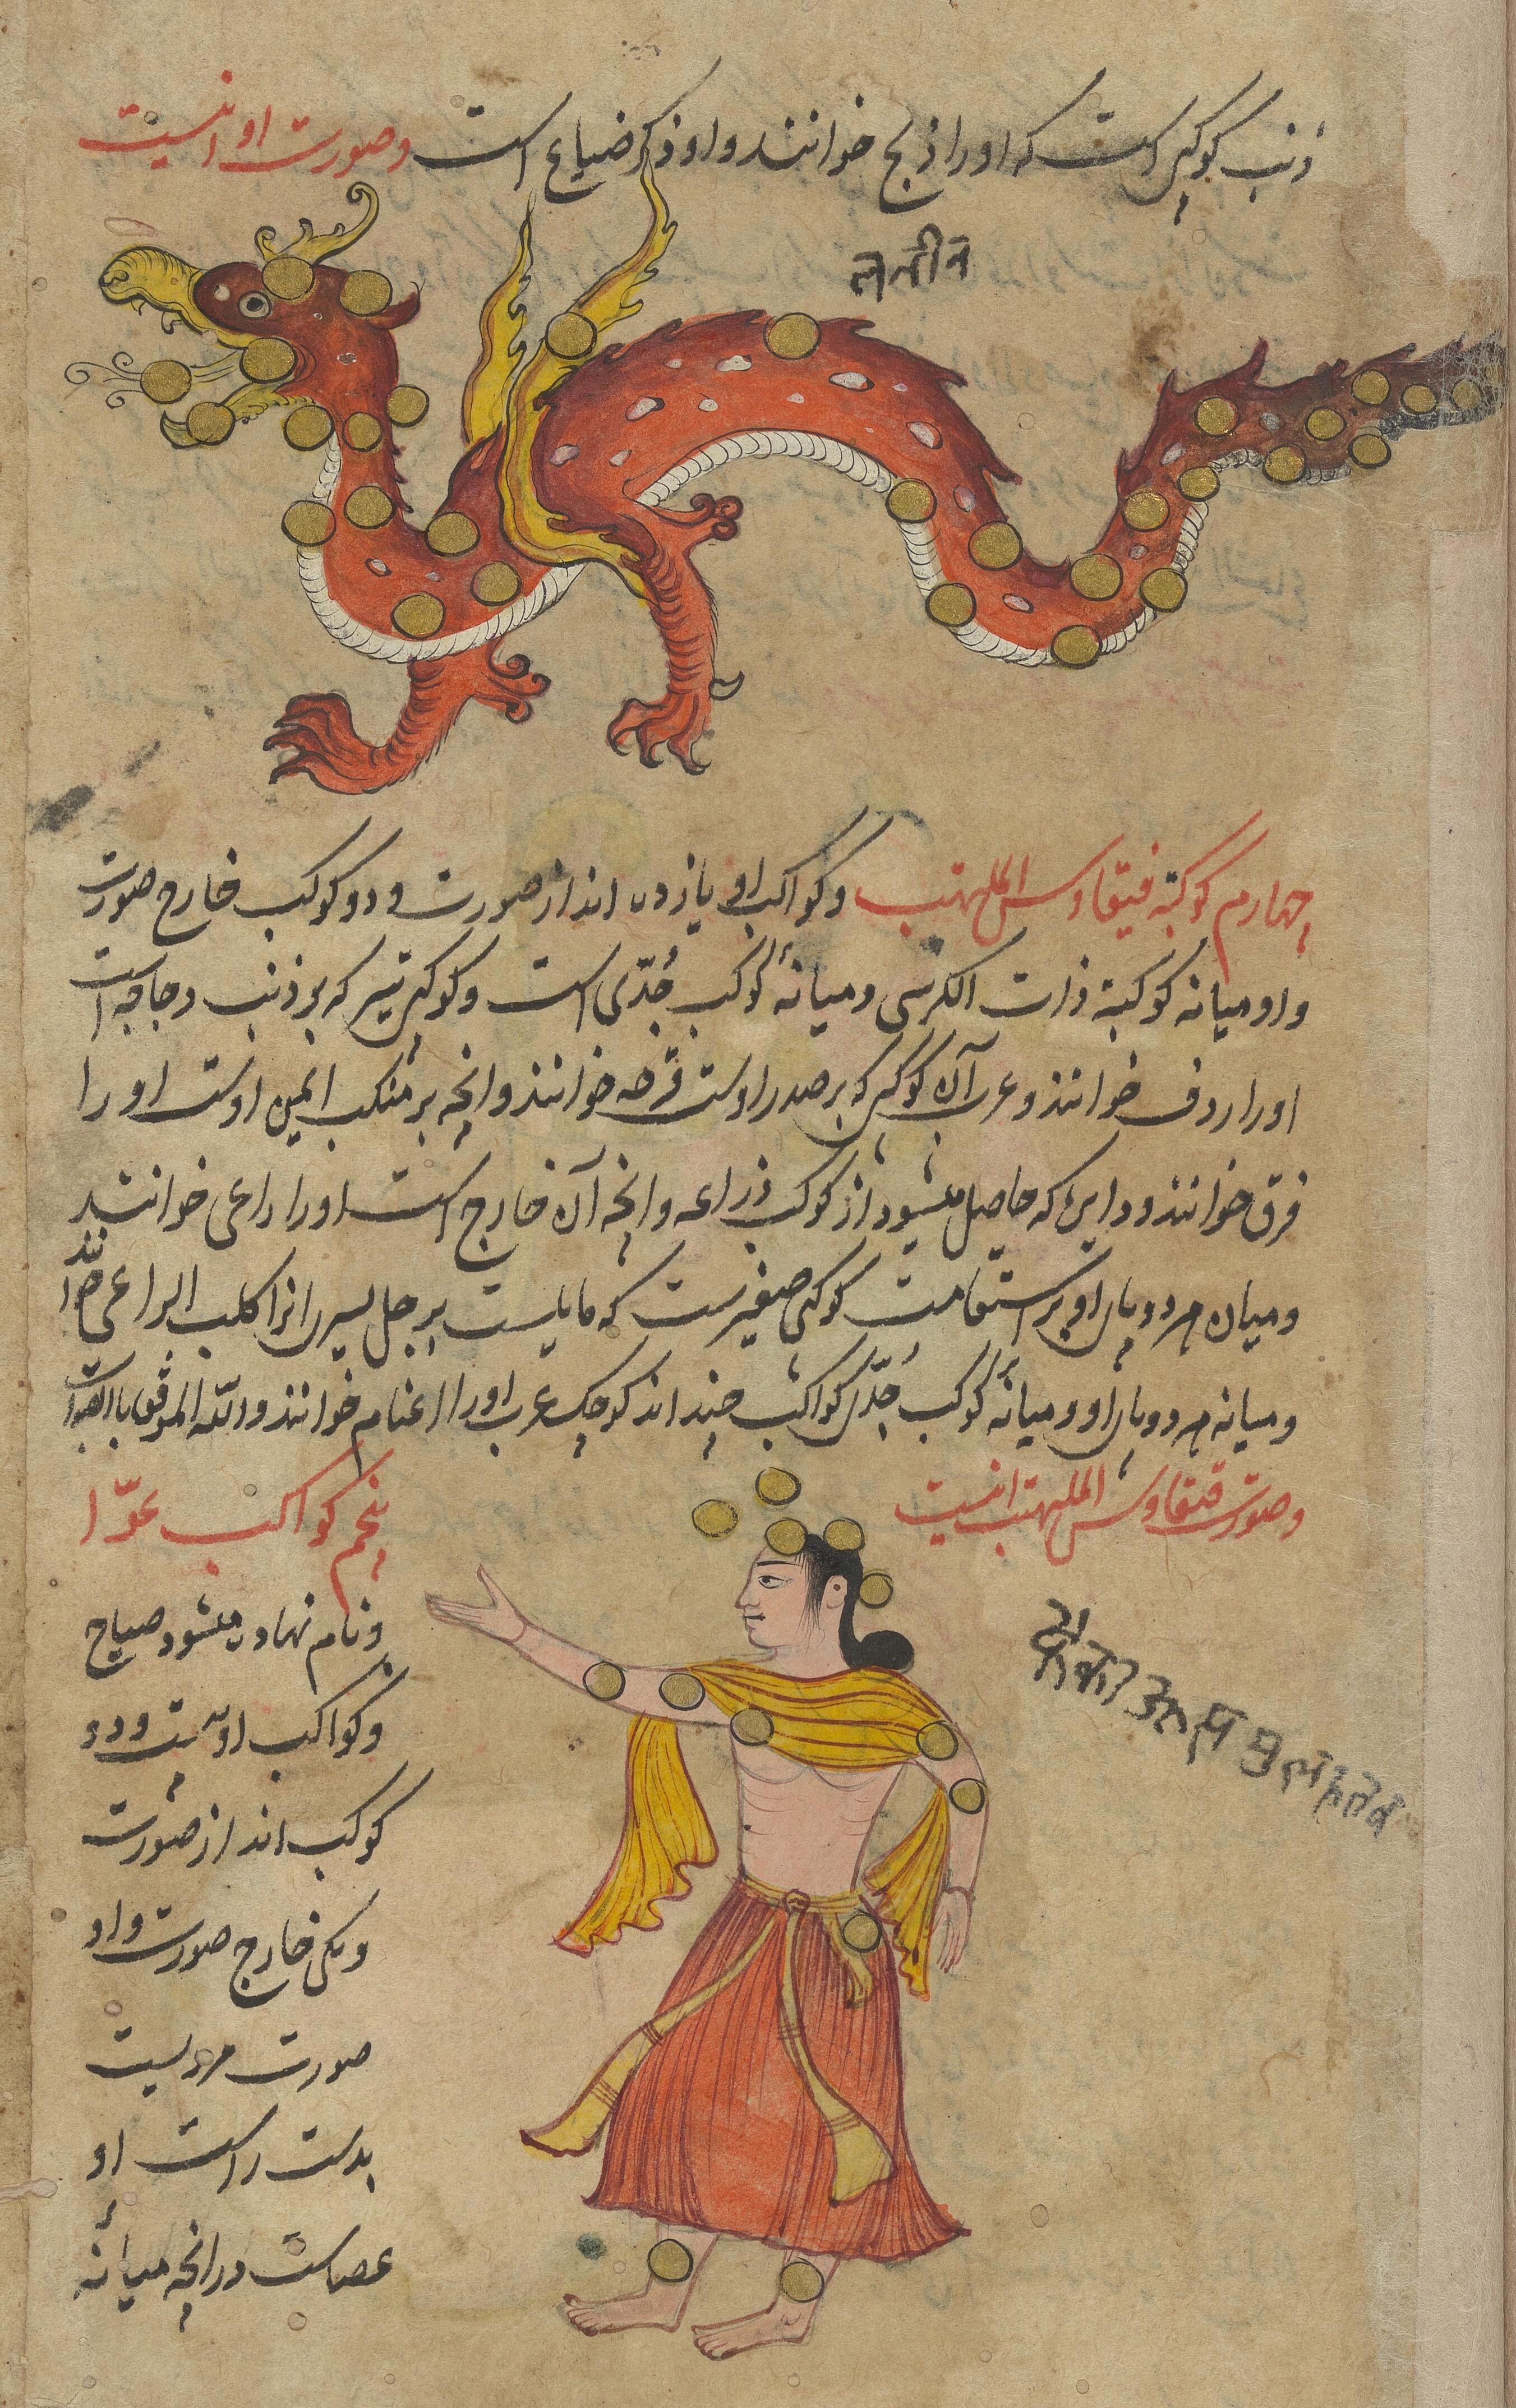 ذنب کوکبی است که اورا ذیخ خوانند و او ذکر ضباع است و صورت او اینست
चहارم کوکبه قیقاوس الملتهب و کواکب او یازده اند از صورت و دو کوکب خارج صورت
و او میانه کوکبة ذات الکرسی و میانهٔ کوکب جُدّی است و کوکبی نیر که بر ذنب دجاجه است
اورا ردف خوانند و عرب آن کوکبی که بر صدر اوست قرحه خوانند و انچه بر منکب ایمن اوست اورا
فرق خوانند و دایرهٔ که حاصل میشود از کوکب ذراعه و انچه آن خارج است اورا راعی خوانند
و میان هر دو پای او بر استقامت کوکبی صغیرست که مایلست برجل یسری انرا کلب الراعی خوانند
و میانه هر دو پای او و میانهٔ کوکب جدّی کواکب چند اند کوچک عرب اورا اغنام خوانند و الله الموفق
و صورت قیقاوس الملتهب اینست
پنجم کواکب عوّا
و نام نهاده میشود صیاح
و کواکب او بیست و دو
کوکب اند از صورت
و یکی خارج صورت و او
صورت مردیست
بدست راست او
عصاست در انچه میانهٔ